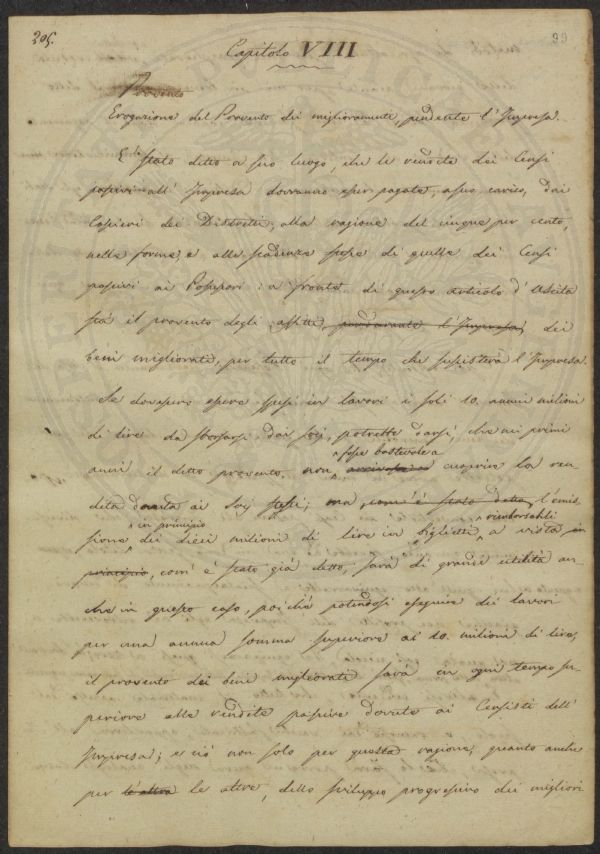 205.
99
Capitolo VIII
Provento
Erogazione del Provento dei miglioramenti, pendente l'Impresa.
E' stato detto a suo luogo, che le rendite dei Censi
passivi all' Impresa dovranno esser pagate, a suo carico, dai
Cassieri dei Distretti, alla ragione del cinque per cento,
nelle forme, e alle scadenze stesse di quelle dei Censi
passivi ai Possessori: a fronte di questo articolo d'Uscita
sta il provento degli affitti, pendente l'Impresa, dei
beni migliorati, per tutto il tempo che sussisterà l'Impresa.
Se dovessero essere spesi in lavori i soli 10. annui milioni
di lire da sborsarsi dai Socj, potrebbe darsi, che nei primi
fosse bastevole a
anni il detto provento non cuoprire la ren
dita dovuta ai Socj stessi; ma, com'è stato detto, l'emis
in principio rimborsabili
sione dei dieci milioni di lire in biglietti a vista in
principio, com'è stato già detto, sarà di grande utilità an
che in questo caso, poichè potendosi eseguire dei lavori
per una annua somma superiore ai 10. milioni di lire,
il provento dei beni migliorati sarà in ogni tempo su
periore alle rendite passive dovute ai Censisti dell'
Impresa; e ciò non solo per questa ragione, quanto anche
per le altre, dello sviluppo progressivo dei migliori